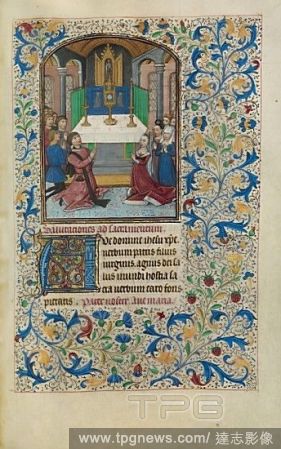 Salutationes ad sacramentum.
Ave domine ihesu xpe
verbum patris filius
virginis. agnus dei sa
lus mundi hostia sa
cra verbum caro fons
pietatis. Pater noster. Ave maria.
TPG
www.tpgnews.com/ 達志影像